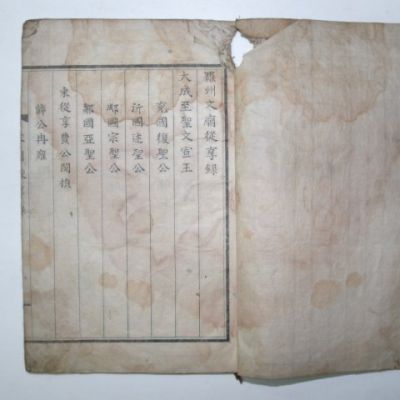 羅州文廟從享錄
大成至聖文宣王
兗國復聖公
沂國述聖公
郕國宗聖公
鄒國亞聖公
東從享費公閔損
薛公冉雍